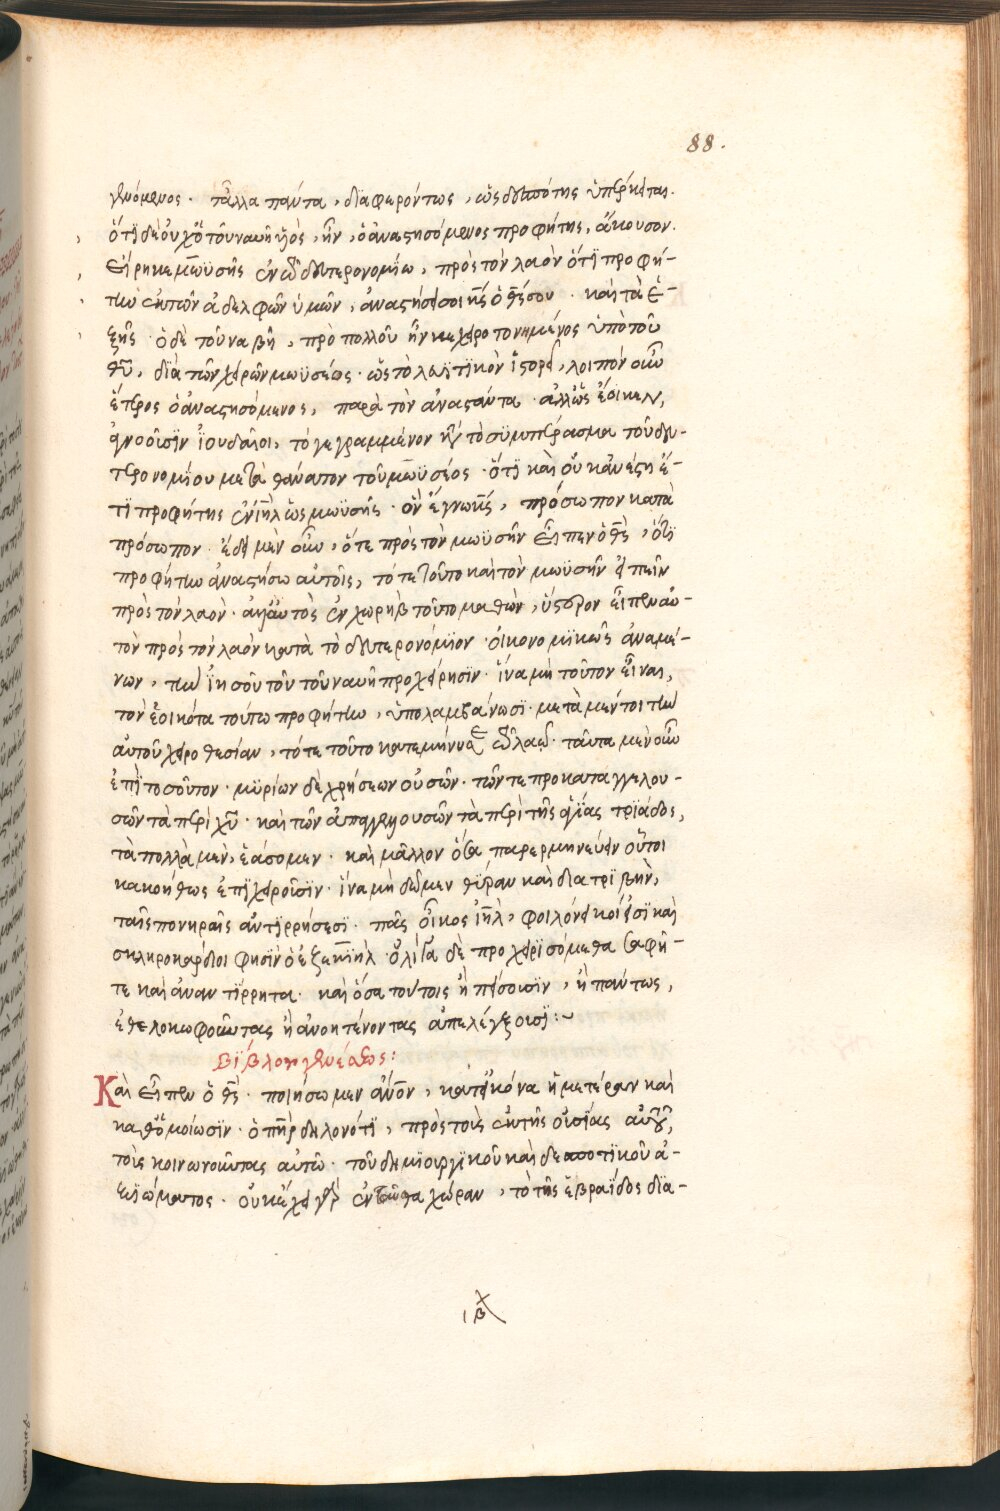 88.
γενόμενος · τἆλλα πάντα, διαφερόντως, ὡς δεσπότης ὑπέρκειται.
ὅτι δὲ οὐχ ὁ τοῦ ναυῆ υἱὸς, ἦν, ὁ ἀναστησόμενος προφήτης, ἄκουσον.
εἴρηκε μωϋσῆς ἐν τῶ δευτερονομίω, πρὸς τὸν λαὸν ὅτι προφή-
την ἐκ τῶν ἀδελφῶν ὑμῶν, ἀναστήσει σοι κς ὁ θς σου · καὶ τὰ ἑ-
ξῆς · ὁ δὲ τοῦ ναβῆ, πρὸ πολλοῦ ἦν κεχειροτονημένος ὑπὸ τοῦ
θυ, διὰ τῶν χειρῶν μωϋσέως · ὡς τὸ λευϊτικὸν ἱστορεῖ, λοιπὸν οὖν
ἕτερος ὁ ἀναστησόμενος, παρὰ τὸν ἀναστάντα · ἄλλως ἔοικεν,
ἀγνοοῦσιν ἰουδαῖοι, τὸ γεγραμμένον εἰς τὸ συμπέρασμα τοῦ δευ-
τερονομίου μετὰ θάνατον τοῦ μωϋσέος · ὅτι καὶ οὐκ ἀνέστη ἔ-
τι προφήτης ἐν ιηλ ὡς μωϋσῆς · ὃν ἔγνω κς, πρόσωπον κατὰ
πρόσωπον · ἔδει μὲν οὖν, ὅτε πρὸς τὸν μωϋσῆν εἶπεν ὁ θς, ὅτι
προφήτην ἀναστήσω αὐτοῖς, τότε τοῦτο καὶ τὸν μωϋσῆν εἰπεῖν
πρὸς τὸν λαὸν · ἀλλ' αὐτὸς ἐν χωρὴβ τοῦτο μαθὼν, ὕστερον εἶπεν αὐ-
τὸν πρὸς τὸν λαὸν κατὰ τὸ δευτερονόμιον · οἰκονομικῶς ἀναμέ-
νων, τὴν ἰησοῦ τοῦ τοῦ ναυῆ προχείρησιν · ἵνα μὴ τοῦτον εἶναι,
τὸν ἐοικότα τούτω προφήτην, ὑπολαμβάνωσι · μετὰ μέντοι τὴν
αὐτοῦ χειροθεσίαν, τότε τοῦτο κατεμήνυσε τῶ λαῶ · ταῦτα μὲν οὖν
ἐπὶ τοσοῦτον · μυρίων δὲ χρήσεων οὐσῶν · τῶν τε προκαταγγελου-
σῶν τὰ περὶ χυ · καὶ τῶν ἀπαγγελουσῶν τὰ περὶ τῆς ἁγίας τριάδος,
τὰ πολλὰ μὲν, ἐάσομεν · καὶ μᾶλλον ὅσα παρερμηνεύειν οὗτοι
κακοήθως ἐπιχειροῦσιν · ἵνα μὴ δῶμεν θύραν καὶ διατριβὴν,
ταῖς πονηραῖς ἀντιρρήσεσι · πᾶς οἶκος ιηλ, φιλόνεικοί εἰσι καὶ
σκληροκάρδιοι φησὶν ὁ ἐζεκιήλ · ὀλίγα δὲ προχειρισόμεθα σαφῆ-
τε καὶ ἀναντίρρητα · καὶ ὅσα τούτοις ἢ πείσουσιν, ἢ πάντως,
ἐθελοκωφοῦντας ἢ ἀνοηταίνοντας ἀπελέγξουσι:~
Βίβλου γενέσεως:
Καὶ εἶπεν ὁ θς · ποιήσωμεν ἄνον, κατ' εἰκόνα ἡμετέραν καὶ
καθ' ὁμοίωσιν · ὁ πηρ δηλονότι, πρὸς τοὺς ἐκ τῆς οὐσίας αὐτοῦ,
τοὺς κοινωνοῦντας αὐτῶ · τοῦ δημιουργικοῦ καὶ δεσποτικοῦ ἀ-
ξιώματος · οὐκ ἔχει γὰρ ἐνταῦθα χώραν, τὸ τῆς ἑβραΐδος δια-
ιβ